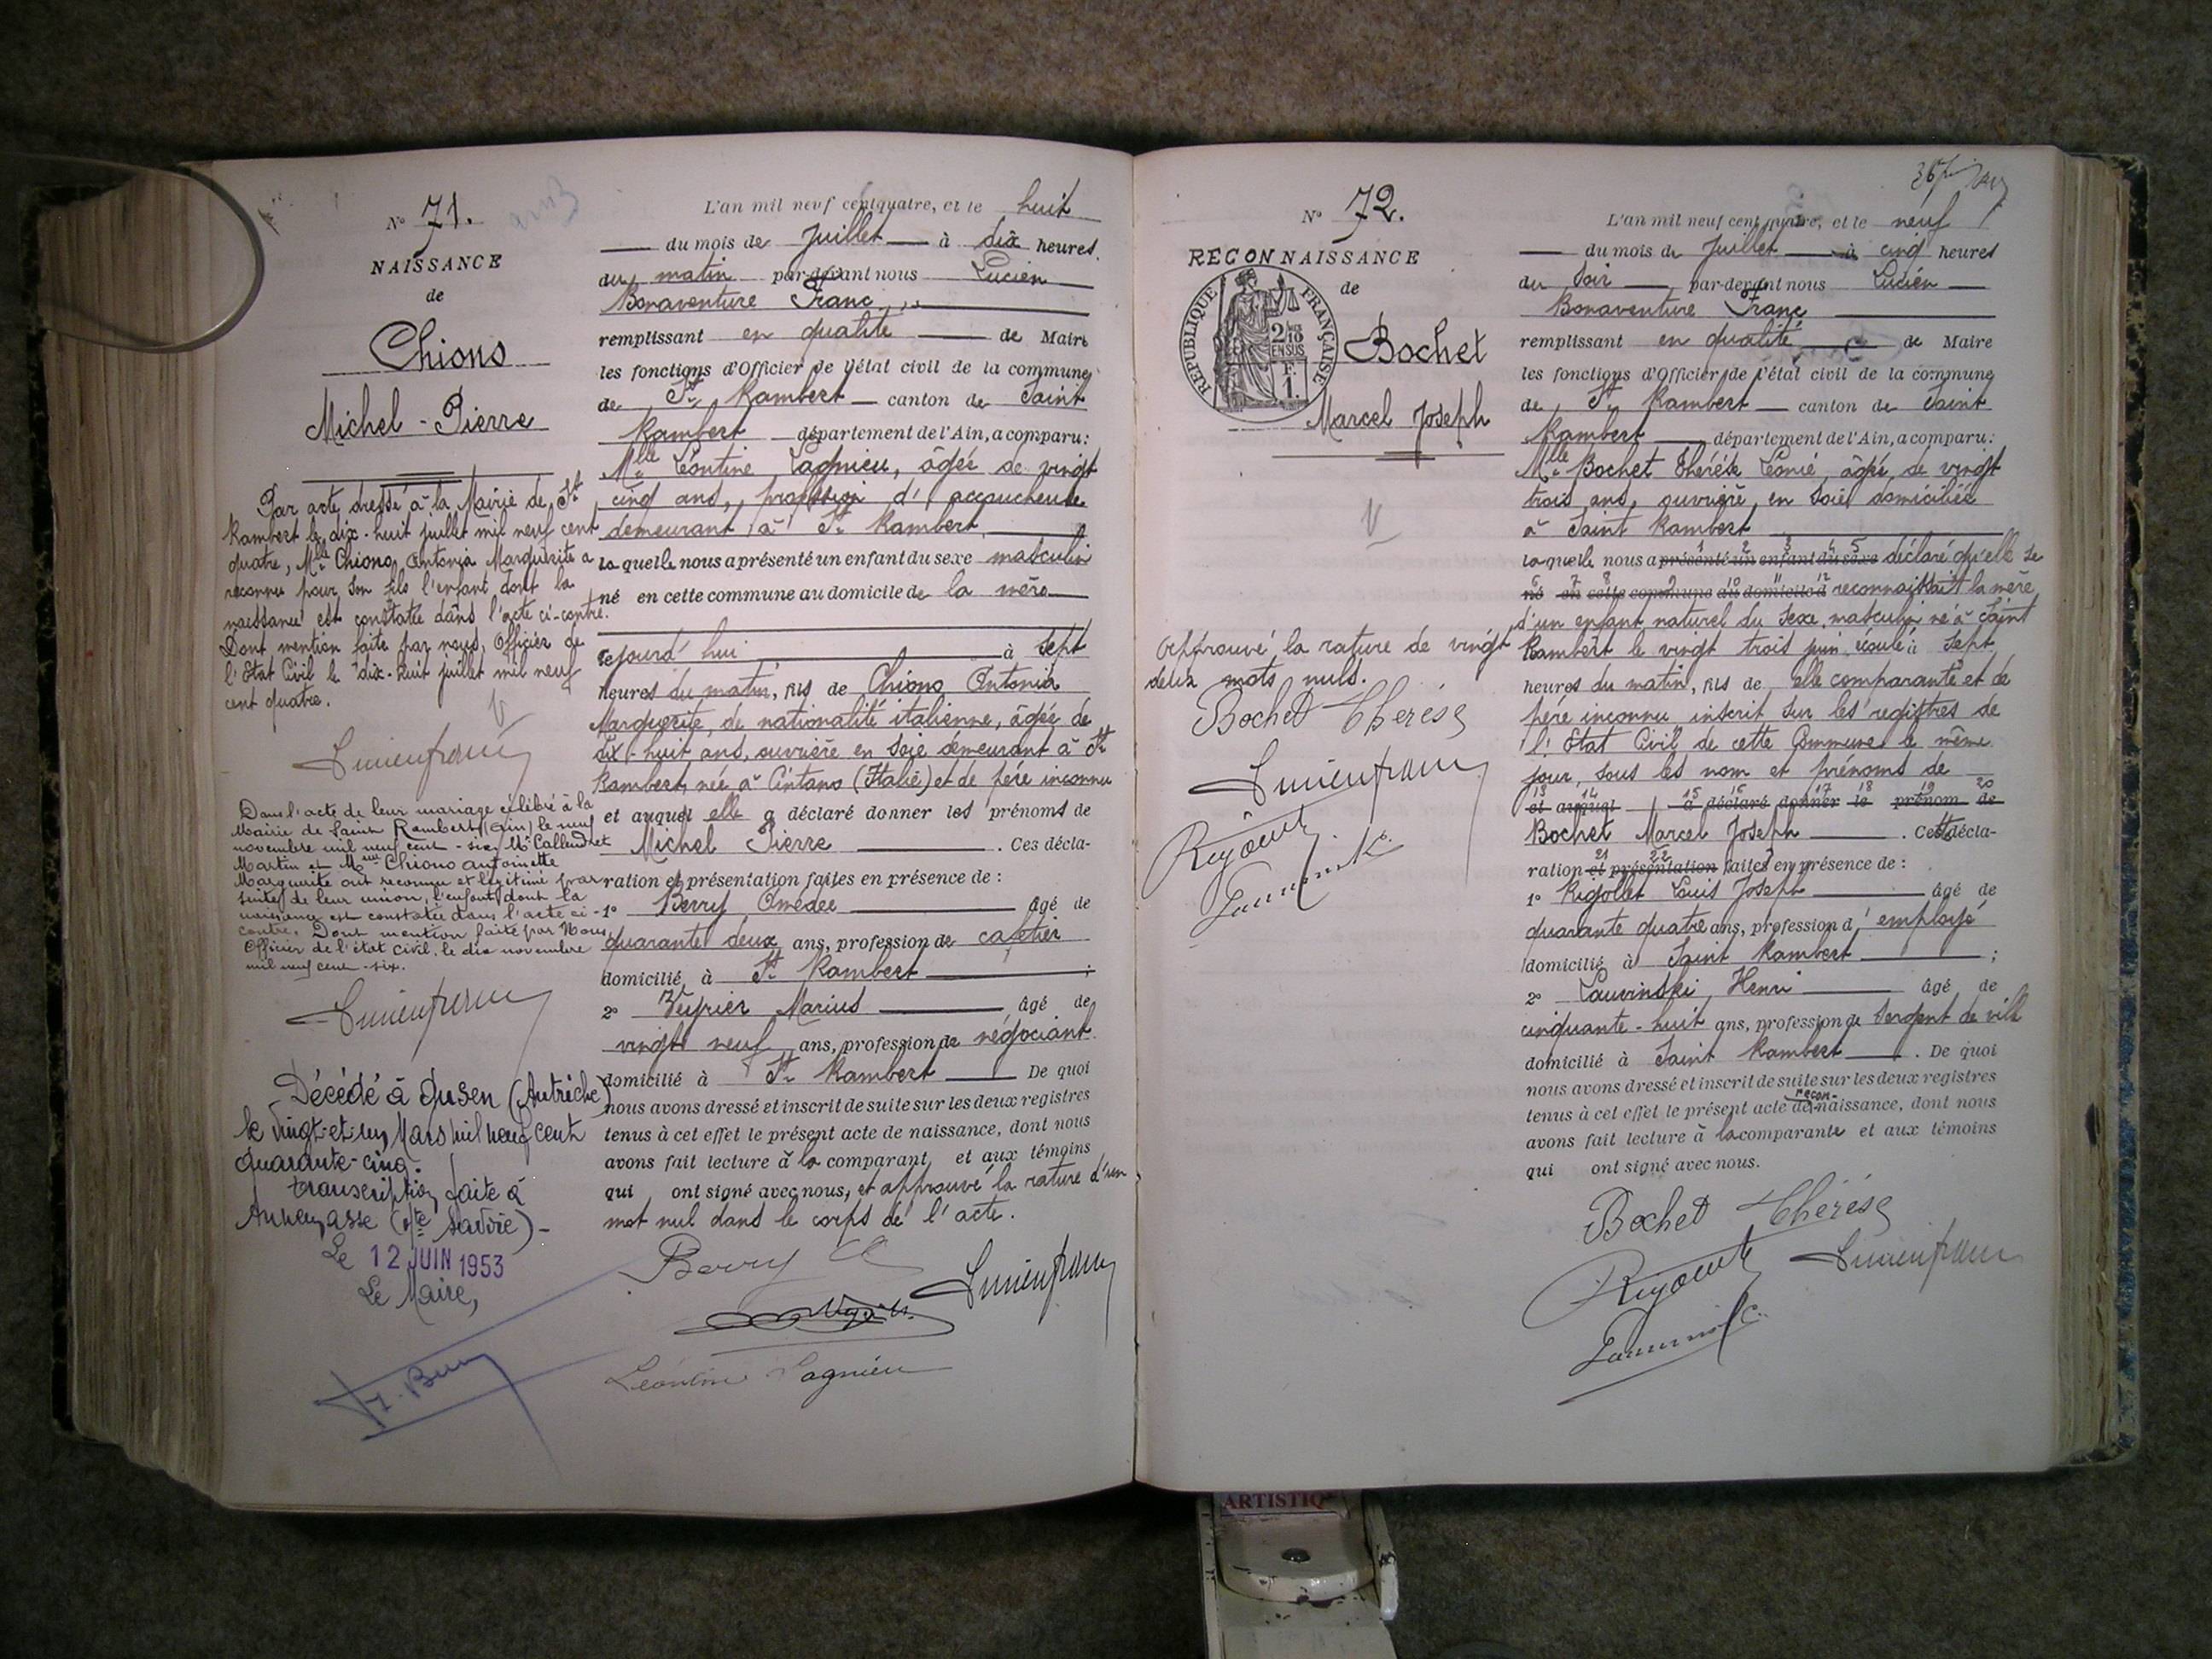 N° 71.
NAISSANCE
de
Chiono
Michel - Pierre
Par acte dressé à la Mairie de St
Rambert le dix-huit juillet mil neuf cent
quatre, Mlle Chiono Antonia Marguerite a
reconnu pour son fils l'enfant dont la
naissance est constatée dans l'acte ci-contre.
Dont mention faite par nous, Officier de
l'Etat Civil le dix-huit juillet mil neuf
cent quatre.
Lucien franc
Dans l'acte de leur mariage célébré à la
Mairie de Saint Rambert (Ain) le neuf
novembre mil neuf cent - six, Mr Callendret
Martin et Mme Chiono Antoinette
Marguerite ont reconnu et légitimé par
suite de leur union, l'enfant dont la
naissance est constatée dans l'acte ci-
contre. Dont mention faite par Nous
Officier de l'état civil, le dix novembre
mil neuf cent - six.
Lucien franc
Décédé à Gusen (Autriche)
le Vingt-et-un Mars mil neuf cent
quarante-cinq.
transcription faite à
Annemasse (Hte Savoie) -
Le 12 JUIN 1953
Le Maire,
L'an mil neuf cent quatre, et le huit
du mois de Juillet à dix heures
du matin par-devant nous Lucien
Bonaventure Franc
remplissant en qualité de Maire
les fonctions d'Officier de l'état civil de la commune
de St Rambert canton de Saint
Rambert département de l'Ain, a comparu:
Mlle Léontine Lagnieu, âgée de vingt
cinq ans, profession d'accoucheuse
demeurant à St Rambert,
laquelle nous a présenté un enfant du sexe masculin
né en cette commune au domicile de la mère
cejourd'hui à sept
heures du matin, fils de Chiono Antonia
Marguerite, de nationalité italienne, âgée de
dix-huit ans, ouvrière en soie demeurant à St
Rambert, née à Cintano (Italie) et de père inconnu
et auquel elle a déclaré donner les prénoms de
Michel Pierre . Ces décla-
ration et présentation faites en présence de :
1° Berry Amédée âgé de
quarante deux ans, profession de cafetier
domicilié à St Rambert ;
2° Veyrier Marius âgé de
vingt neuf ans, profession de négociant
domicilié à St Rambert De quoi
nous avons dressé et inscrit de suite sur les deux registres
tenus à cet effet le présent acte de naissance, dont nous
avons fait lecture à la comparant et aux témoins
qui ont signé avec nous, et approuvé la rature d'un
mot nul dans le corps de l'acte.
Berry A
Lucien franc
Léontine Lagnieu
N° 72.
RECONNAISSANCE
de
RÉPUBLIQUE FRANÇAISE
2/10
EN SUS
F.
1.
Bochet
Marcel Joseph
Approuvé la rature de vingt
deux mots nuls.
Bochet Thérèse
Lucien franc
L'an mil neuf cent quatre, et le neuf
du mois de Juillet à cinq heures
du soir par-devant nous Lucien
Bonaventure Franc
remplissant en qualité de Maire
les fonctions d'Officier de l'état civil de la commune
de St Rambert canton de Saint
Rambert département de l'Ain, a comparu:
Mlle Bochet Thérèse Léonie, âgée de vingt
trois ans, ouvrière en soie domiciliée
à Saint Rambert
laquelle nous a présenté un enfant du sexe déclaré qu'elle se
né en cette commune au domicile d reconnaissait la mère
d'un enfant naturel du sexe masculin né à Saint
Rambert le vingt trois juin écoulé à sept
heures du matin, fils de elle comparante et de
père inconnu inscrit sur les registres de
l'Etat Civil de cette Commune le même
jour, sous les nom et prénoms de
et auquel a déclaré donner le prénom de
Bochet Marcel Joseph . Cette décla-
ration et présentation faites en présence de :
1° Rigollet Louis Joseph âgé de
quarante quatre ans, profession d'employé
domicilié à Saint Rambert ;
2° Lauvinski, Henri âgé de
cinquante-huit ans, profession de Sergent de ville
domicilié à Saint Rambert . De quoi
nous avons dressé et inscrit de suite sur les deux registres
tenus à cet effet le présent acte de recon-naissance, dont nous
avons fait lecture à la comparante et aux témoins
qui ont signé avec nous.
Bochet Thérèse
Lucien franc
ARTISTIQ